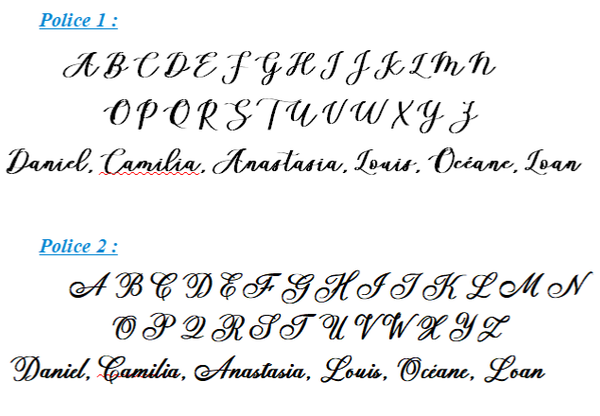 Police 1 :
A B C D E F G H I J K L M N
O P Q R S T U V W X Y Z
Daniel, Camilia, Anastasia, Louis, Océane, Loan
Police 2 :
A B C D E F G H I J K L M N
O P Q R S T U V W X Y Z
Daniel, Camilia, Anastasia, Louis, Océane, Loan